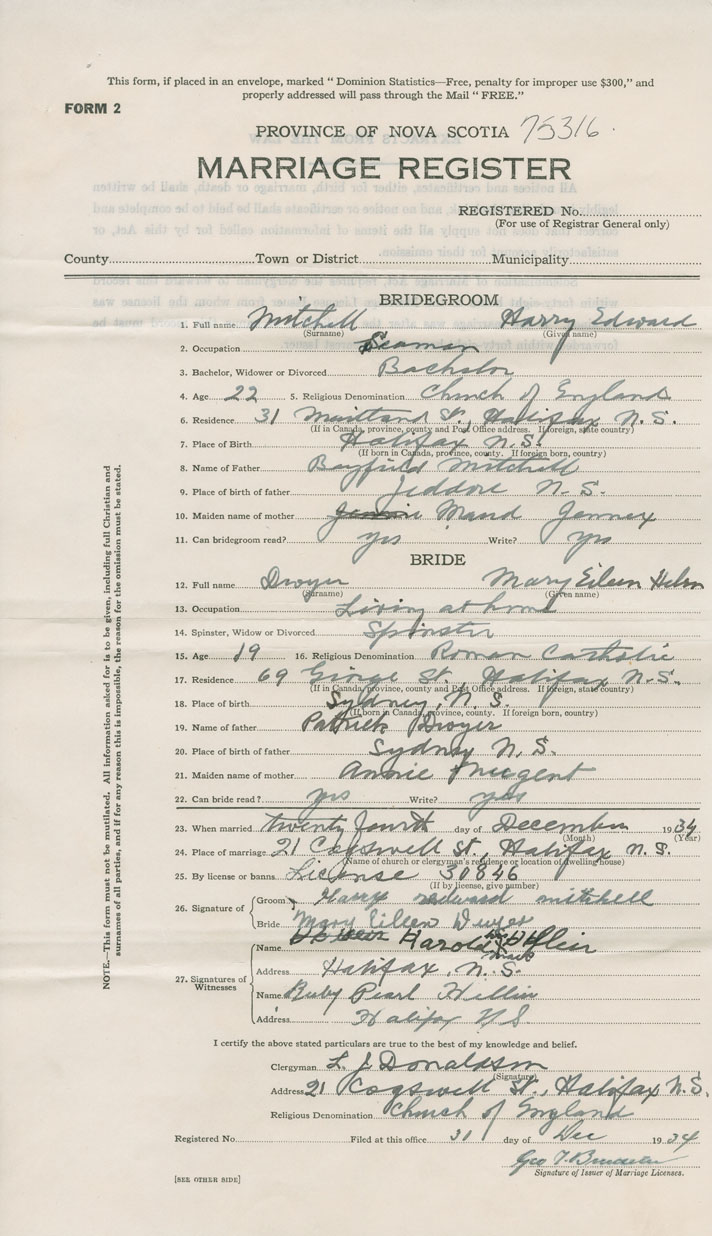 This form, if placed in an envelope, marked "Dominion Statistics—Free, penalty for improper use $300," and
properly addressed will pass through the Mail "FREE."
FORM 2
PROVINCE OF NOVA SCOTIA 75316
MARRIAGE REGISTER
REGISTERED No.
(For use of Registrar General only)
County Town or District Municipality
BRIDEGROOM
1. Full name Mitchell Harry Edward
(Surname) (Given name)
2. Occupation Seaman
3. Bachelor, Widower or Divorced Bachelor
4. Age 22 5. Religious Denomination Church of England
6. Residence 31 Maitland St., Halifax N.S.
(If in Canada, province, county and Post Office address. If foreign, state country)
7. Place of Birth Halifax N.S.
(If born in Canada, province, county. If foreign born, country)
8. Name of Father Bayfield Mitchell
9. Place of birth of father Jeddore N.S.
10. Maiden name of mother Jennie Maud Jennex
11. Can bridegroom read? yes Write? yes
BRIDE
12. Full name Dwyer Mary Eileen Helen
(Surname) (Given name)
13. Occupation Living at home
14. Spinster, Widow or Divorced Spinster
15. Age 19 16. Religious Denomination Roman Catholic
17. Residence 69 George St., Halifax N.S.
(If in Canada, province, county and Post Office address. If foreign, state country)
18. Place of birth Sydney, N.S.
(If born in Canada, province, county. If foreign born, country)
19. Name of father Patrick Dwyer
20. Place of birth of father Sydney N.S.
21. Maiden name of mother Annie Nugent
22. Can bride read? yes Write? yes
23. When married twenty fourth day of December 1934
(Month) (Year)
24. Place of marriage 21 Cogswell St., Halifax N.S.
(Name of church or clergyman's residence or location of dwelling house)
25. By license or banns License 30846
(If by license, give number)
26. Signature of Groom Harry Edward Mitchell
Bride Mary Eileen Dwyer
27. Signatures of Witnesses
Name Harold
mark
Address Halifax, N.S.
Name Ruby Pearl
Address Halifax N.S.
I certify the above stated particulars are true to the best of my knowledge and belief.
Clergyman L. J. Donaldson
(Signature)
Address 21 Cogswell St., Halifax N.S.
Religious Denomination Church of England
Registered No. Filed at this office 31 day of Dec 1934
Geo
Signature of Issuer of Marriage Licenses.
[SEE OTHER SIDE]
NOTE.—This form must not be mutilated. All information asked for is to be given, including full Christian and
surnames of all parties, and if for any reason this is impossible, the reason for the omission must be stated.